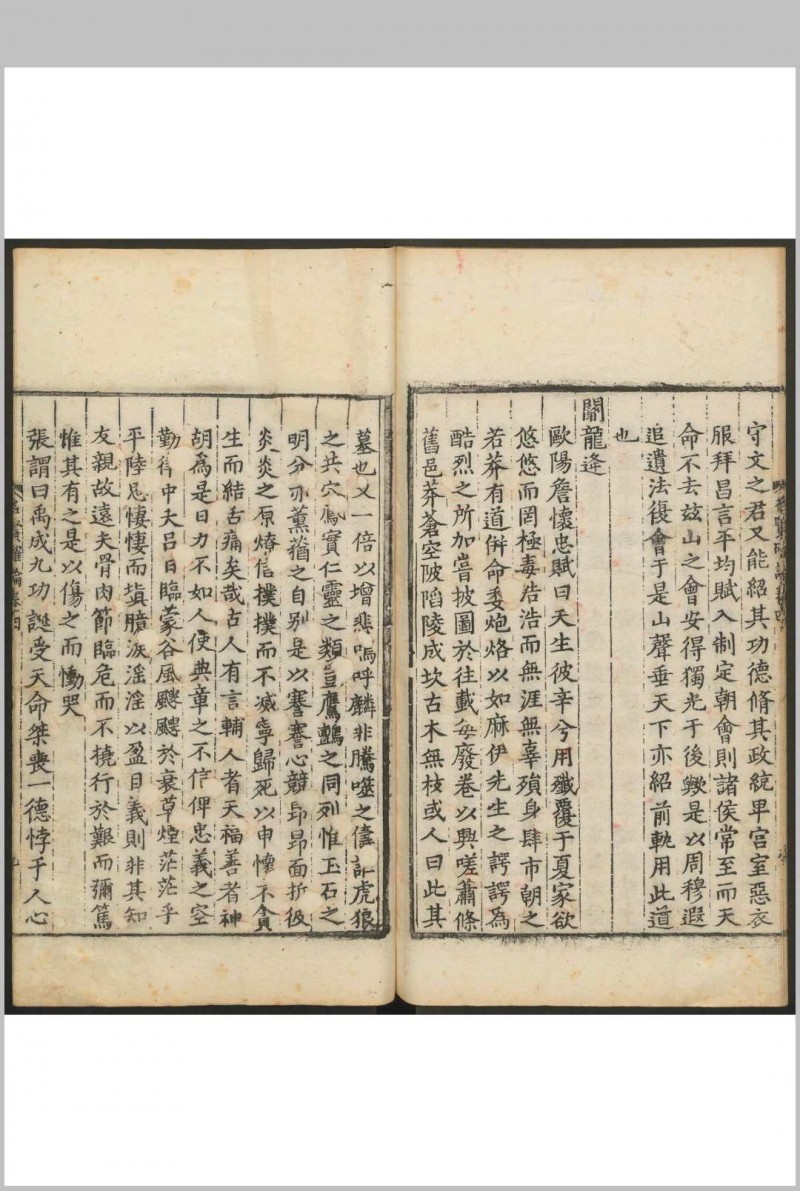 守文之君又能紹其功德脩其政統卑宫室惡衣
服拜昌言平均賦入制定朝會則諸侯常至而天
命不去兹山之會安得獨光于後歟是以周穆遐
追遺法復會于是山聲垂天下亦紹前軌用此道
也
關龍逄
歐陽詹懷忠賦曰天生彼辛兮用殲覆于夏家欲
悠悠而罔極毒浩浩而無涯無辜殞身肆市朝之
若莽有道併命委炮烙以如麻伊先生之諤諤為
酷烈之所加嘗披圖於往載每廢卷以興嗟蕭條
舊邑莽蒼空陂陷陵成坎古木無枝或人曰此其
墓也乂一倍以增悲嗚呼麟非騰噬之儔詎虎狼
之共穴鳳實仁靈之類豈鷹鸇之同列惟玉石之
明分亦薰蕕之自别是以謇謇心競昂昂面折彼
炎炎之原燎信撲撲而不滅寧歸死以申懷不貪
生而結舌痛矣哉古人有言輔人者天福善者神
胡為是日力不如人使典章之不信俾忠義之空
勤 中夭吕日臨蒙谷風飃飃於衰草煙茫茫乎
平陸 悽悽而塡臆淚淫淫以盈目義則非其知
友親故遠夫骨肉節臨危而不橈行於艱而彌篤
惟其有之是以傷之而慟哭
張謂曰禹成九功誕受天命桀喪一德悖乎人心